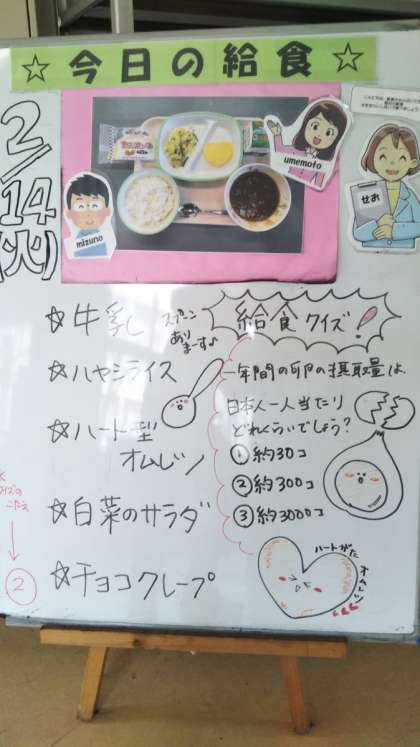 ☆ 今日の給食 ☆
2/14(火)
umemoto
mizuno
せお
☆牛乳
スプーン
あり
ます♪
☆ハヤシライス
☆ハート型
オムレツ
☆白菜のサラダ
☆チョコクレープ
給食クイズ!
一年間の卵の摂取量は、
日本人一人当たり
どれくらいでしょう?
①約30コ
②約300コ
③約3000コ
ハートがた
オムレツ
クイズの
こたえ
↓
②